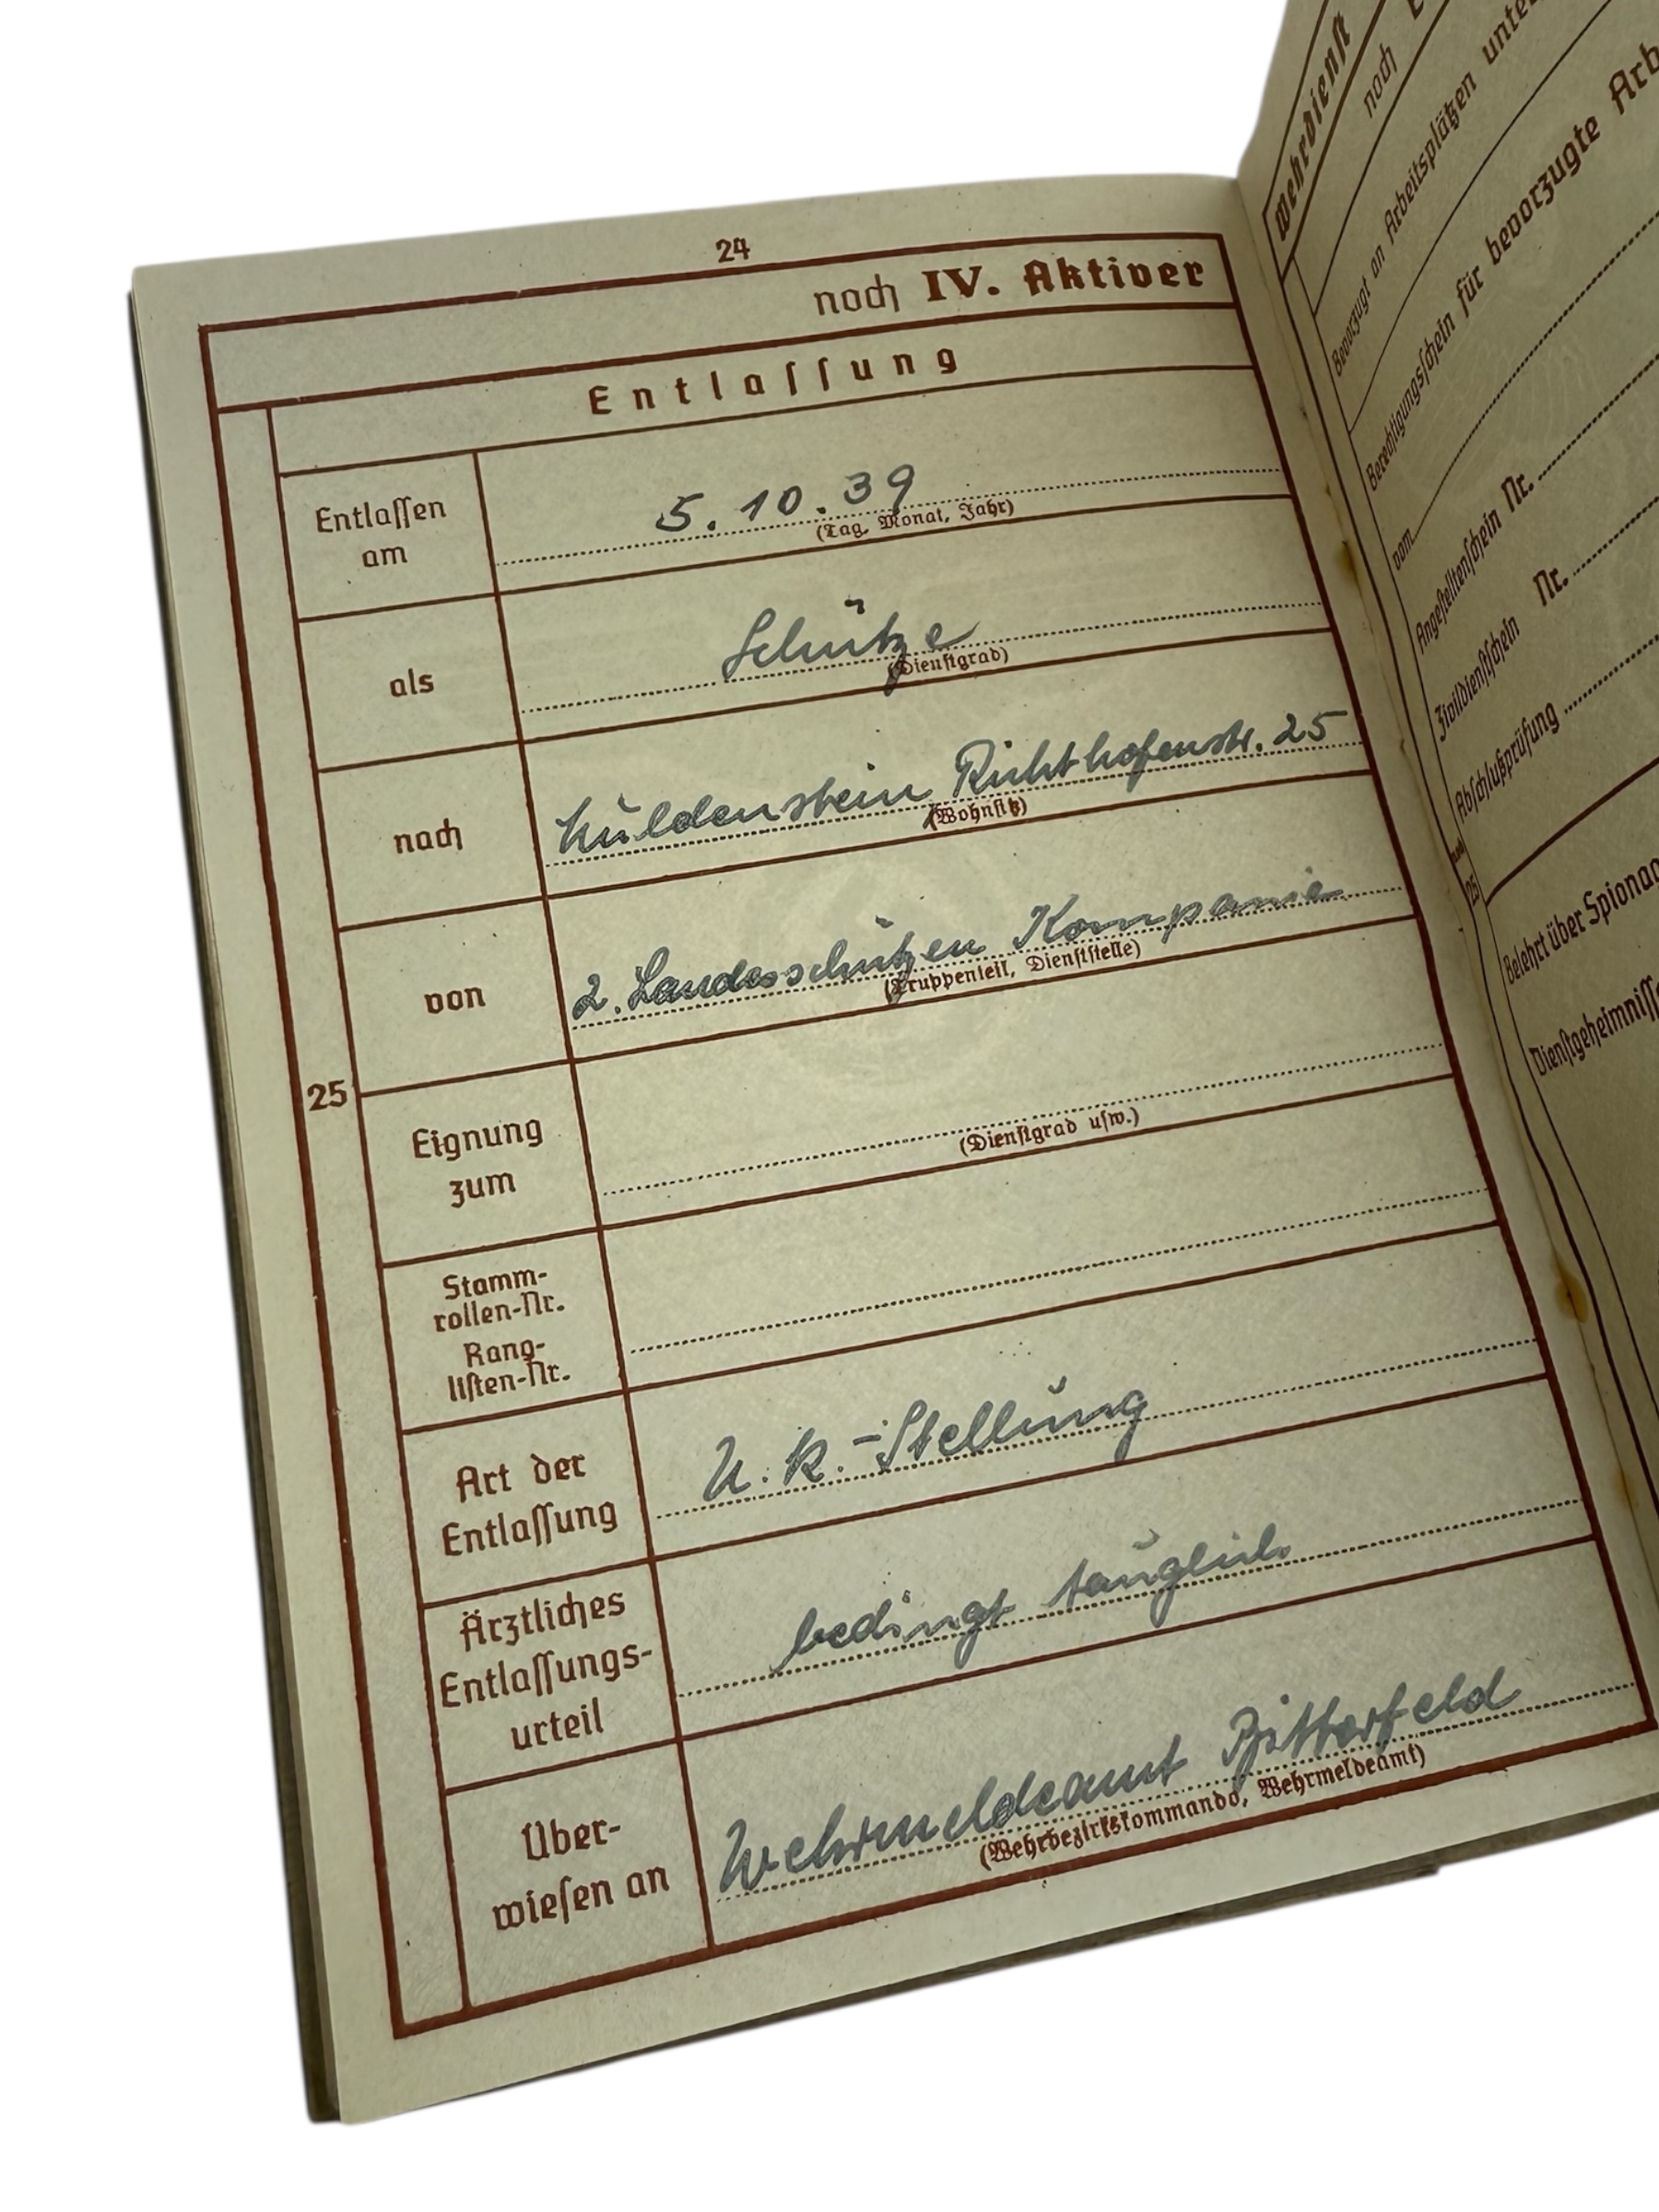 24
noch IV. Aktiver
Entlassung
25
Entlassen am
5. 10. 39
(Tag, Monat, Jahr)
als
Schütze
(Dienstgrad)
nach
Muldenstein Richthofenstr. 25
(Wohnsitz)
von
2. Landesschützen Kompanie
(Truppenteil, Dienststelle)
Eignung
zum
(Dienstgrad usw.)
Stamm-
rollen-Nr.
Rang-
listen-Nr.
Art der
Entlassung
U. k. - Stellung
Ärztliches
Entlassungs-
urteil
bedingt tauglich
Über-
wiesen an
Wehrmeldeamt Bitterfeld
(Wehrbezirkskommando, Wehrmeldeamt)
Wehrdienst
noch
Bevorzugt an Arbeitsplätzen
Berechtigungsschein für bevorzugte
vom
Angestelltenschein Nr.
Zivildienstschein Nr.
Abschlußprüfung
25
Belehrt über